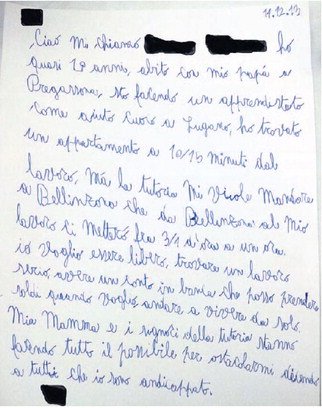 11.12.13
Ciao Mi chiamo ho
quasi 18 anni, abito con mio papà a
Pregassona, sto facendo un apprendistato
come aiuto cuoco a Lugano, ho trovato
un appartamento a 10/15 minuti dal
lavoro, ma la tutoria Mi vuole Mandare
a Bellinzona che da Bellinzona al Mio
lavoro ci Metterò fra 3/4 d'ora a un ora.
io voglio essere libero, trovare un lavoro
serio avere un conto in banca che posso prendere
soldi quando voglio andare a vivere da solo.
Mia Mamma e i signori della tutoria stanno
facendo tutto il possibile per ostacolarmi dicendo
a tutti che io sono andicappato.